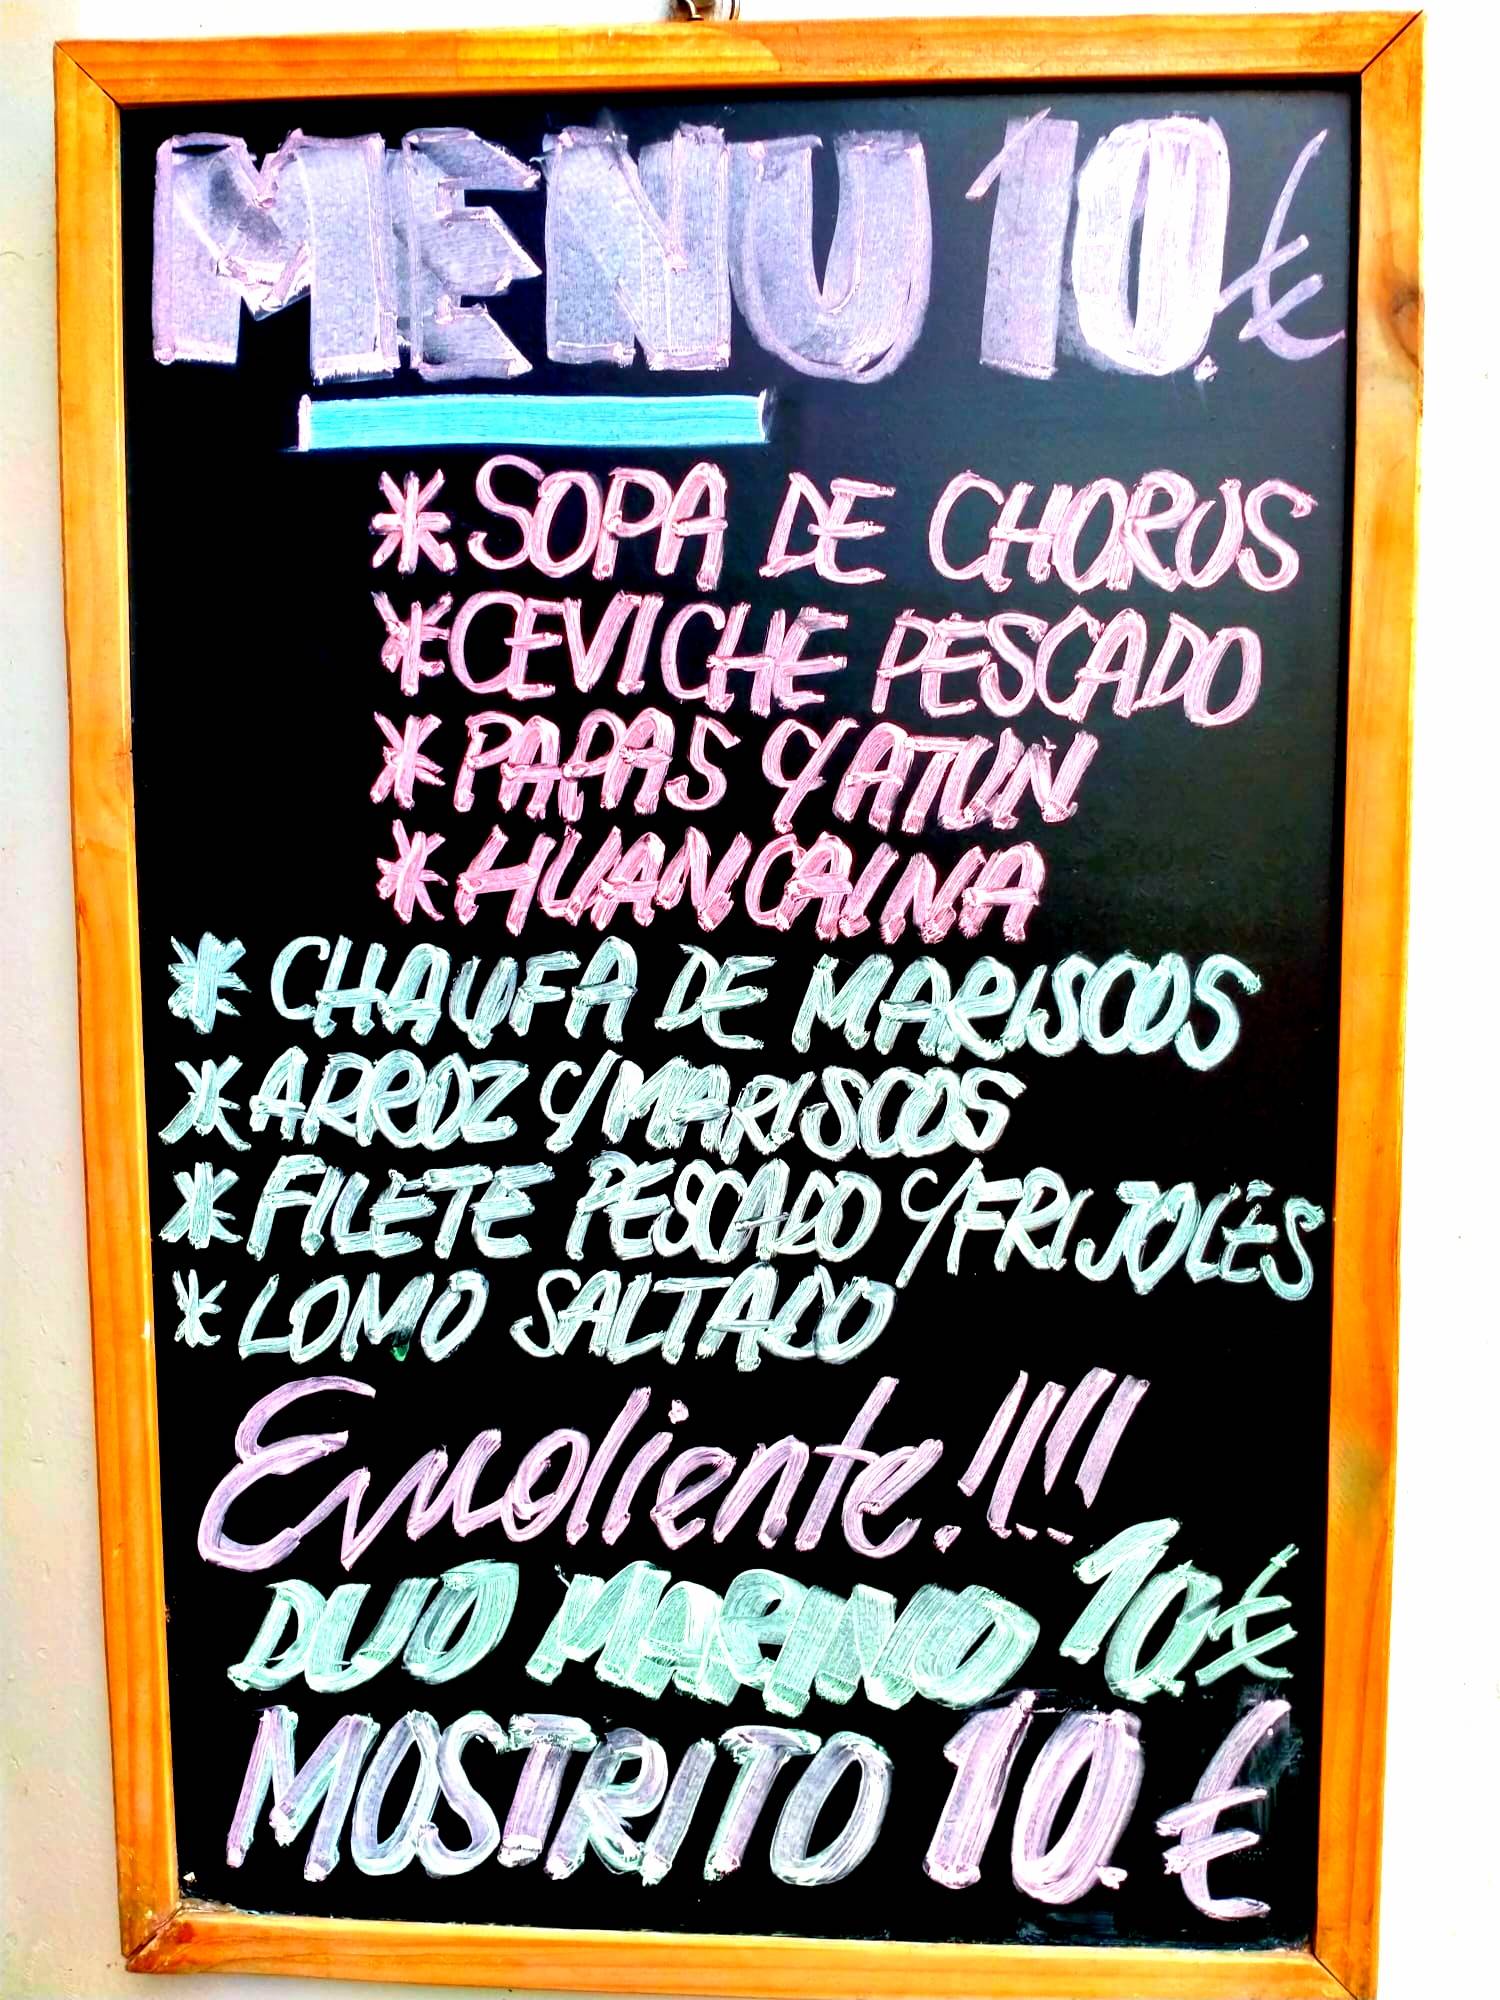 MENU 10.€
* SOPA DE CHOROS
* CEVICHE PESCADO
* PAPAS C/ATUN
* HUANCAINA
* CHAUFA DE MARISCOS
* ARROZ C/MARISCOS
* FILETE PESCADO C/FRIJOLES
* LOMO SALTADO
Emoliente!!!!
DUO MARINO 10€
MOSTRITO 10.€